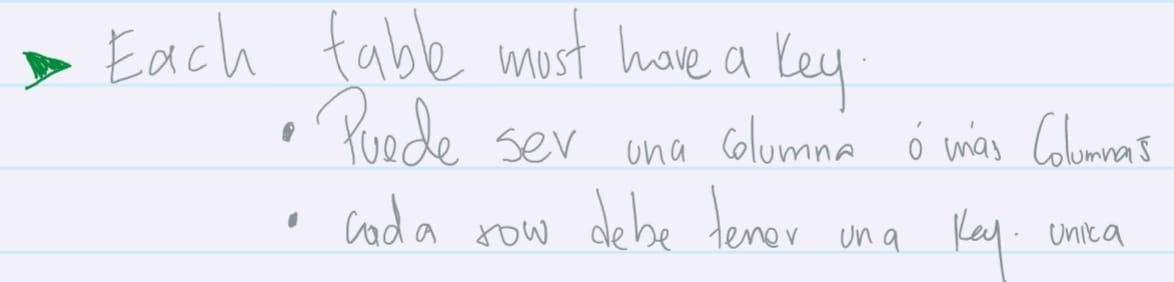 Each table must have a Key.
• Puede ser una Columna ó más Columnas
• Cada row debe tener una Key. unica